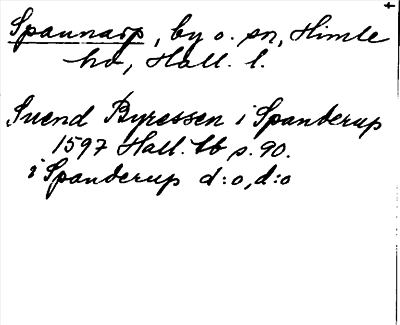 Spannarp, by o. sn, Himle
hd, Hall. l.
Suend Byressen i Spanderup
1597 Hall. lb s. 90.
i Spanderup d:o, d:o